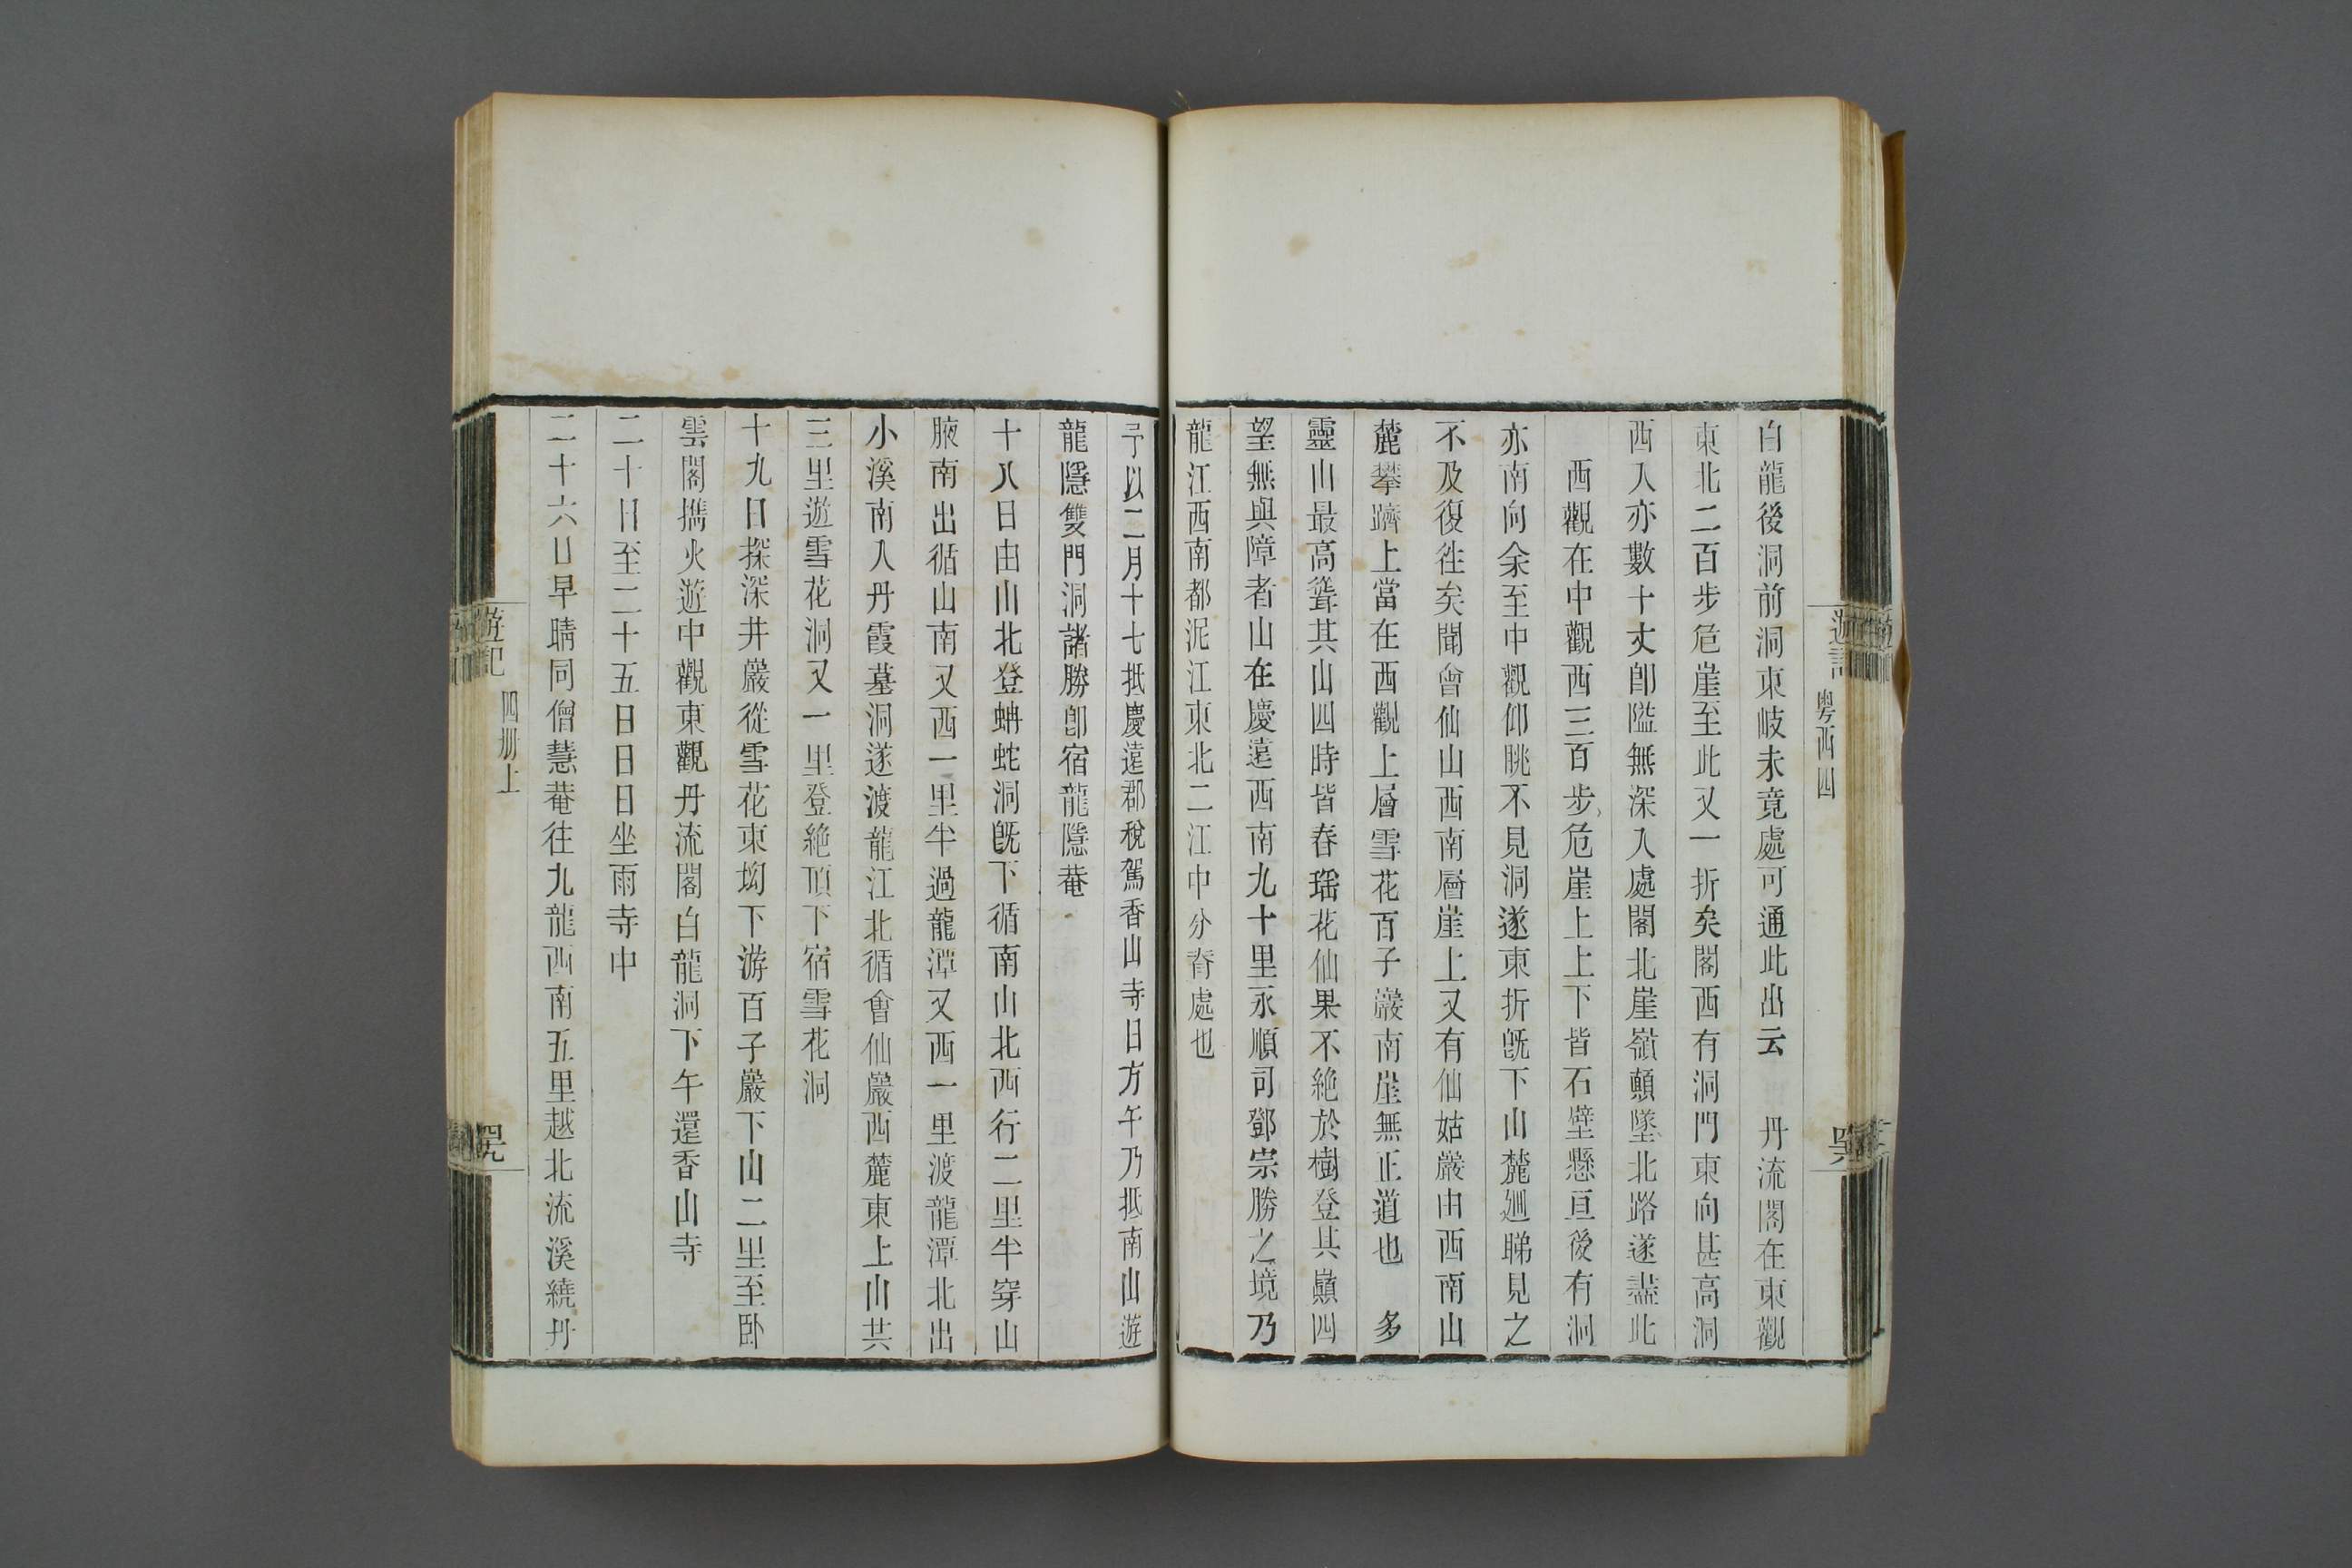 遊記
粤西四
白龍後洞前洞東岐未竟處可通此出云　丹流閣在東觀
東北二百步危崖至此又一折矣閣西有洞門東向甚高洞
西入亦數十丈卽隘無深入處閣北崖嶺顛墜北路遂盡此
西觀在中觀西三百步危崖上上下皆石壁懸亘後有洞
亦南向余至中觀仰眺不見洞遂東折旣下山麓廻睇見之
不及復往矣聞會仙山西南層崖上又有仙姑巖由西南山
麓攀躋上當在西觀上層雪花百子巖南崖無正道也　多
靈山最高聳其山四時皆春瑶花仙果不絶於樹登其巔四
望無與障者山在慶遠西南九十里永順司鄧宗勝之境乃
龍江西南都泥江東北二江中分脊處也
予以二月十七抵慶遠郡稅駕香山寺日方午乃抵南山遊
龍隱雙門洞諸勝卽宿龍隱菴
十八日由山北登蚺蛇洞旣下循南山北西行二里半穿山
腋南出循山南又西一里半過龍潭又西一里渡龍潭北出
小溪南入丹霞墓洞遂渡龍江北循會仙巖西麓東上山共
三里遊雪花洞又一里登絶頂下宿雪花洞
十九日探深井巖從雪花東坳下游百子巖下山二里至臥
雲閣擕火遊中觀東觀丹流閣白龍洞下午還香山寺
二十日至二十五日日日坐雨寺中
二十六日早晴同僧慧菴往九龍西南五里越北流溪繞丹
遊記
四册上